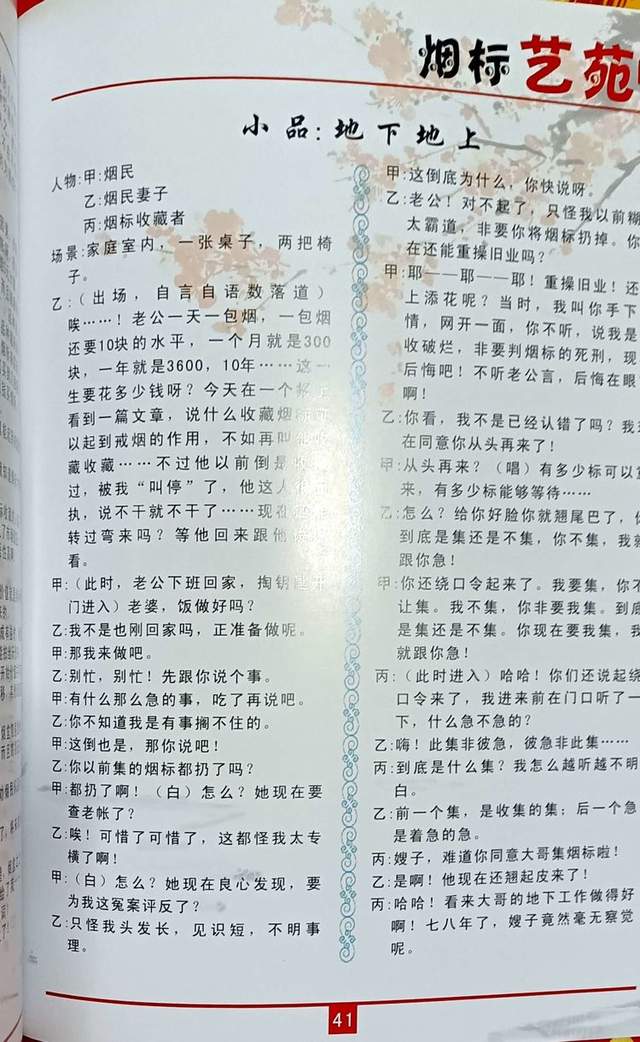 烟标 艺苑
小品:地下地上
人物:甲:烟民
乙:烟民妻子
丙:烟标收藏者
场景:家庭室内，一张桌子，两把椅
子。
乙:(出场，自言自语数落道)
唉……！老公一天一包烟，一包烟
还要10块的水平，一个月就是300
块，一年就是3600，10年……这一
生要花多少钱呀？今天在一个
看到一篇文章，说什么收藏烟标
以起到戒烟的作用，不如再叫
藏收藏……不过他以前倒是
过，被我“叫停”了，他这人
执，说不干就不干了……现在
转过弯来吗？等他回来跟他
看。
甲:(此时，老公下班回家，掏钥匙开
门进入)老婆，饭做好吗？
乙:我不是也刚回家吗，正准备做呢。
甲:那我来做吧。
乙:别忙，别忙！先跟你说个事。
甲:有什么那么急的事，吃了再说吧。
乙:你不知道我是有事搁不住的。
甲:这倒也是，那你说吧！
乙:你以前集的烟标都扔了吗？
甲:都扔了啊！(白)怎么？她现在要
查老帐了？
乙:唉！可惜了可惜了，这都怪我太专
横了啊！
甲:(白)怎么？她现在良心发现，要
为我这冤案评反了？
乙:只怪我头发长，见识短，不明事
理。
甲:这倒底为什么，你快说呀。
乙:老公！对不起了，只怪我以前糊
太霸道，非要你将烟标扔掉。你
在还能重操旧业吗？
甲:耶——耶——耶！重操旧业！还
上添花呢？当时，我叫你手下
情，网开一面，你不听，说我是
收破烂，非要判烟标的死刑，现
后悔吧！不听老公言，后悔在眼
啊！
乙:你看，我不是已经认错了吗？我
在同意你从头再来了！
甲:从头再来？(唱)有多少标可以重
来，有多少标能够等待……
乙:怎么？给你好脸你就翘尾巴了，你
到底是集还是不集，你不集，我就
跟你急！
甲:你还绕口令起来了。我要集，你不
让集。我不集，你非要我集。到底
是集还是不集。你现在要我集，我
就跟你急！
丙:(此时进入)哈哈！你们还说起绕
口令来了，我进来前在门口听了一
下，什么急不急的？
乙:嗨！此集非彼急，彼急非此集……
丙:到底是什么集？我怎么越听越不明
白。
乙:前一个集，是收集的集；后一个急
是着急的急。
丙:嫂子，难道你同意大哥集烟标啦！
乙:是啊！他现在还翘起皮来了！
丙:哈哈！看来大哥的地下工作做得好
啊！七八年了，嫂子竟然毫无察觉
呢。
41